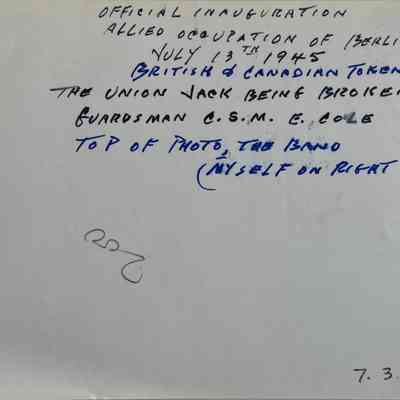 OFFICIAL INAUGURATION
ALLIED OCCUPATION OF BERLI
JULY 13TH 1945
BRITISH & CANADIAN TOKEN
THE UNION JACK BEING BROKE
GUARDSMAN C.S.M. E. COLE
TOP OF PHOTO, THE BAND
(MYSELF ON RIGHT
7.3.